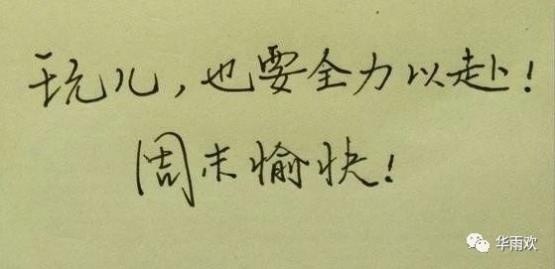 玩儿，也要全力以赴！
周末愉快！
华雨欢